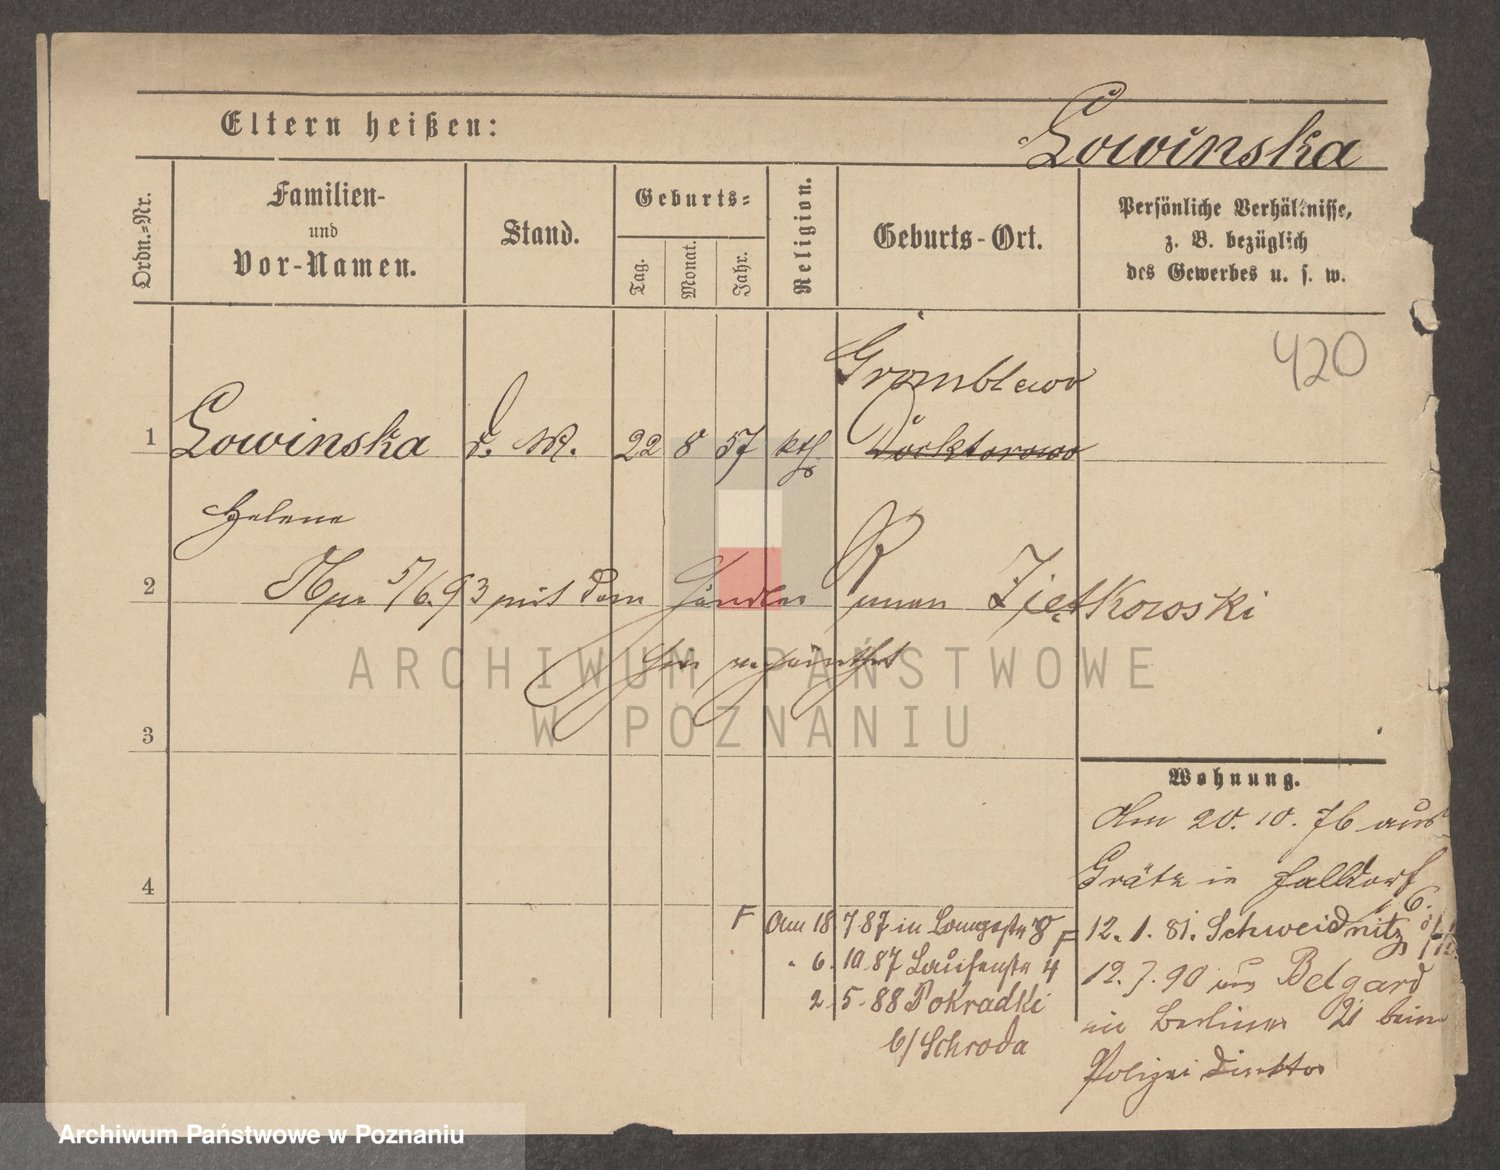 Eltern heißen:
Lowinska
Ordn.-Nr.
Familien-
und
Vor-Namen.
Stand.
Geburts-
Tag.
Monat.
Jahr.
Religion.
Geburts-Ort.
Persönliche Verhältnisse,
z. B. bezüglich
des Gewerbes u. s. w.
420
Gromblewo
1 Lowinska d. M. 22 8 57 kth. Docktorowo
Helene
2 5/6.93 mit dem Händler Roman Ziętkowski
hier verheirathet
ARCHIWUM PAŃSTWOWE
W POZNANIU
3
Wohnung.
Am 20.10.76 aus
Grätz in Halldorf
4
16.
F Am 18 7 87 in Langestr 8
F 12.1.81. Schweidnitz
" 6. 10. 87 Laufenstr 4
12.7.90 aus Belgard
2. 5. 88 Pokradki
in Berliner 21 beim
b/ Schroda
Polizei Direktor
Archiwum Państwowe w Poznaniu